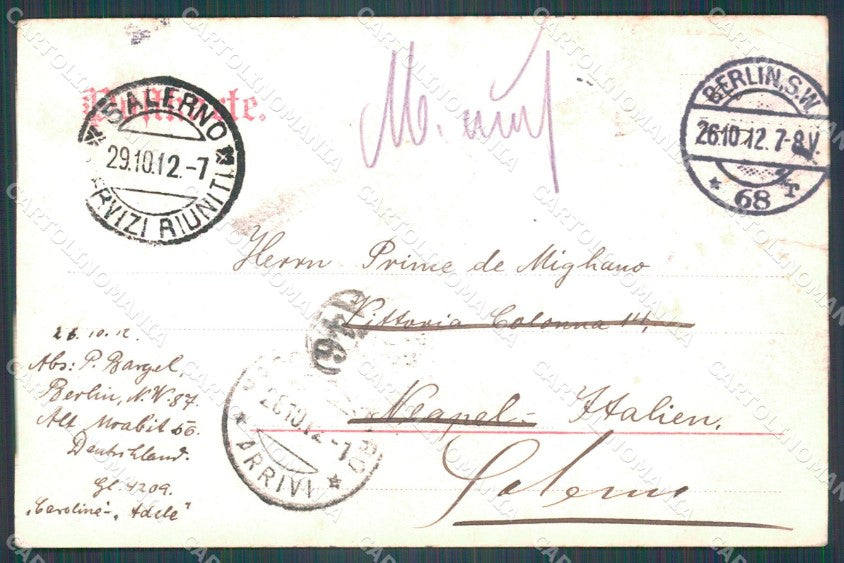 Postkarte.
SALERNO
29.10.12.-7
SERVIZI RIUNITI
BERLIN.S.W.
26.10.12.7-8V.
* 68
Herrn Prime de Mighano
Vittoria Colonna 14,
Neapel - Italien.
Salerno
ARRIVI
26.10.12.
Abs: P. Bargel,
Berlin, N.W 87.
Alt Moabit 56.
Deutschland.
Gl. 4209.
"Carolina" - "Adele"
CARTOLINOMANIA